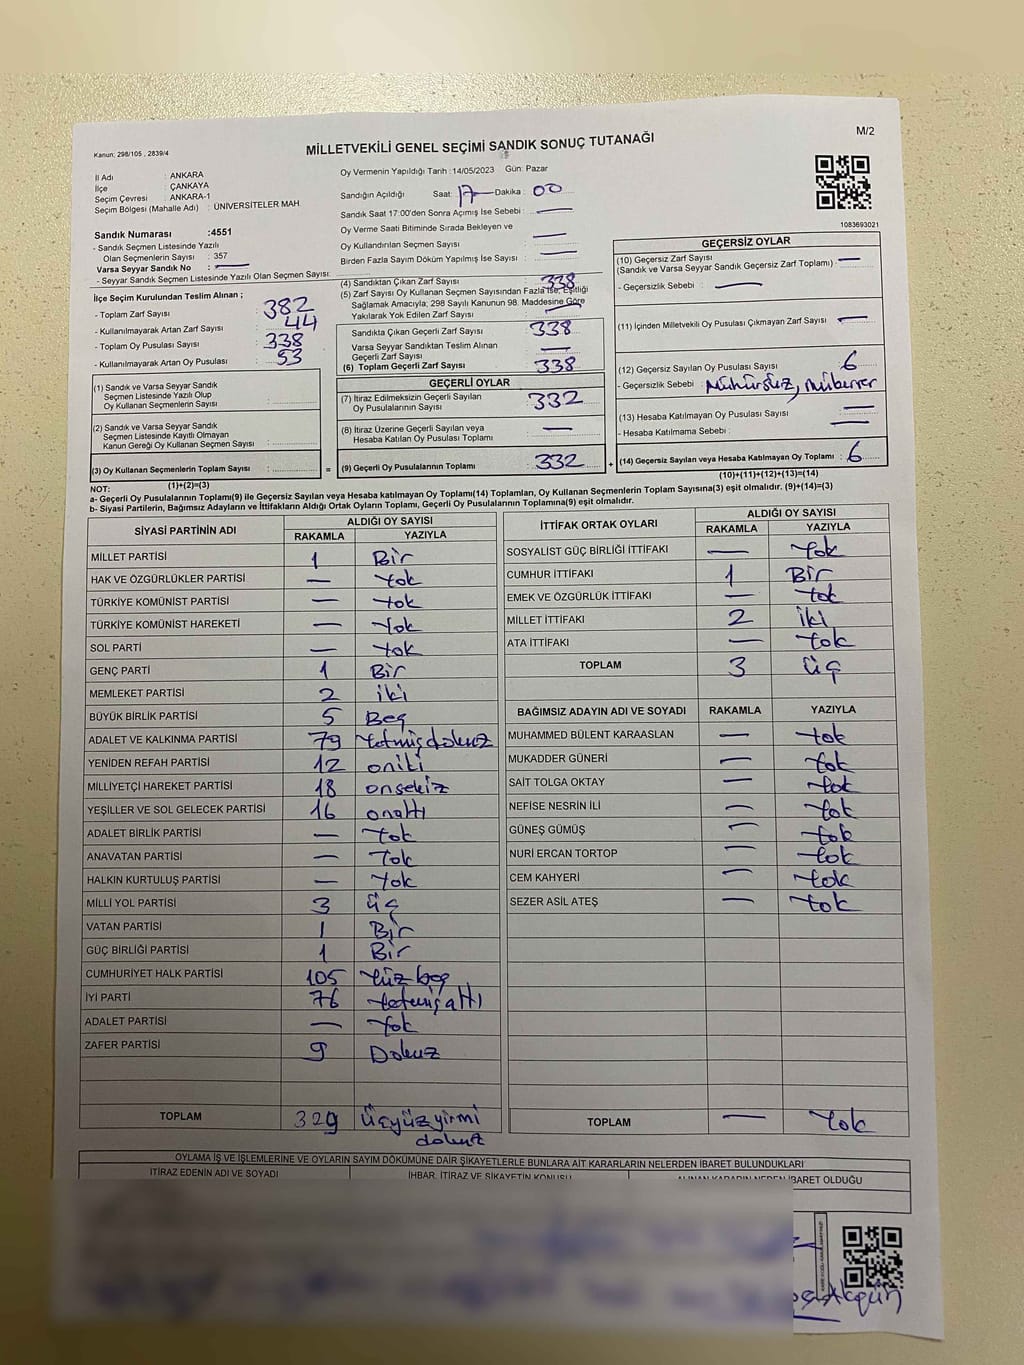 M/2
Kanun; 298/105 , 2839/4
MİLLETVEKİLİ GENEL SEÇİMİ SANDIK SONUÇ TUTANAĞI
İl Adı : ANKARA
İlçe : ÇANKAYA
Seçim Çevresi : ANKARA-1
Seçim Bölgesi (Mahalle Adı) : ÜNİVERSİTELER MAH
Sandık Numarası :4551
- Sandık Seçmen Listesinde Yazılı
Olan Seçmenlerin Sayısı : 357
Varsa Seyyar Sandık No : —
- Seyyar Sandık Seçmen Listesinde Yazılı Olan Seçmen Sayısı:
İlçe Seçim Kurulundan Teslim Alınan ;
- Toplam Zarf Sayısı : 382
- Kullanılmayarak Artan Zarf Sayısı : 44
- Toplam Oy Pusulası Sayısı : 338
- Kullanılmayarak Artan Oy Pusulası : 53
(1) Sandık ve Varsa Seyyar Sandık
Seçmen Listesinde Yazılı Olup
Oy Kullanan Seçmenlerin Sayısı :
(2) Sandık ve Varsa Seyyar Sandık
Seçmen Listesinde Kayıtlı Olmayan
Kanun Gereği Oy Kullanan Seçmen Sayısı :
(3) Oy Kullanan Seçmenlerin Toplam Sayısı :
(1)+(2)=(3)
Oy Vermenin Yapıldığı Tarih : 14/05/2023 Gün: Pazar
Sandığın Açıldığı Saat: 17 — Dakika : 00
Sandık Saat 17:00'den Sonra Açımış İse Sebebi : —
Oy Verme Saati Bitiminde Sırada Bekleyen ve
Oy Kullandırılan Seçmen Sayısı : —
Birden Fazla Sayım Döküm Yapılmış İse Sayısı : —
(4) Sandıktan Çıkan Zarf Sayısı : 338
(5) Zarf Sayısı Oy Kullanan Seçmen Sayısından Fazla İse, Eşitliği
Sağlamak Amacıyla; 298 Sayılı Kanunun 98. Maddesine Göre
Yakılarak Yok Edilen Zarf Sayısı : —
Sandıkta Çıkan Geçerli Zarf Sayısı : 338
Varsa Seyyar Sandıktan Teslim Alınan
Geçerli Zarf Sayısı : —
(6) Toplam Geçerli Zarf Sayısı : 338
GEÇERLİ OYLAR
(7) İtiraz Edilmeksizin Geçerli Sayılan
Oy Pusulalarının Sayısı : 332
(8) İtiraz Üzerine Geçerli Sayılan veya
Hesaba Katılan Oy Pusulası Toplamı : —
= (9) Geçerli Oy Pusulalarının Toplamı : 332
1083693021
GEÇERSİZ OYLAR
(10) Geçersiz Zarf Sayısı
(Sandık ve Varsa Seyyar Sandık Geçersiz Zarf Toplamı) : —
- Geçersizlik Sebebi : —
(11) İçinden Milletvekili Oy Pusulası Çıkmayan Zarf Sayısı : —
(12) Geçersiz Sayılan Oy Pusulası Sayısı : 6
- Geçersizlik Sebebi : Mühürsüz,
(13) Hesaba Katılmayan Oy Pusulası Sayısı : —
- Hesaba Katılmama Sebebi : —
+ (14) Geçersiz Sayılan veya Hesaba Katılmayan Oy Toplamı : 6
(10)+(11)+(12)+(13)=(14)
NOT:
a- Geçerli Oy Pusulalarının Toplamı(9) ile Geçersiz Sayılan veya Hesaba katılmayan Oy Toplamı(14) Toplamları, Oy Kullanan Seçmenlerin Toplam Sayısına(3) eşit olmalıdır. (9)+(14)=(3)
b- Siyasi Partilerin, Bağımsız Adayların ve İttifakların Aldığı Ortak Oyların Toplamı, Geçerli Oy Pusulalarının Toplamına(9) eşit olmalıdır.
SİYASİ PARTİNİN ADI ALDIĞI OY SAYISI
RAKAMLA YAZIYLA
MİLLET PARTİSİ 1 Bir
HAK VE ÖZGÜRLÜKLER PARTİSİ — Yok
TÜRKİYE KOMÜNİST PARTİSİ — Yok
TÜRKİYE KOMÜNİST HAREKETİ — Yok
SOL PARTİ — Yok
GENÇ PARTİ 1 Bir
MEMLEKET PARTİSİ 2 iki
BÜYÜK BİRLİK PARTİSİ 5 Beş
ADALET VE KALKINMA PARTİSİ 79 Yetmişdokuz
YENİDEN REFAH PARTİSİ 12 oniki
MİLLİYETÇİ HAREKET PARTİSİ 18 onsekiz
YEŞİLLER VE SOL GELECEK PARTİSİ 16 onaltı
ADALET BİRLİK PARTİSİ — Yok
ANAVATAN PARTİSİ — Yok
HALKIN KURTULUŞ PARTİSİ — Yok
MİLLİ YOL PARTİSİ 3 üç
VATAN PARTİSİ 1 Bir
GÜÇ BİRLİĞİ PARTİSİ 1 Bir
CUMHURİYET HALK PARTİSİ 105 Yüz beş
İYİ PARTİ 76 Yetmişaltı
ADALET PARTİSİ — Yok
ZAFER PARTİSİ 9 Dokuz
TOPLAM 329 Üçyüzyirmi
dokuz
İTTİFAK ORTAK OYLARI ALDIĞI OY SAYISI
RAKAMLA YAZIYLA
SOSYALİST GÜÇ BİRLİĞİ İTTİFAKI — Yok
CUMHUR İTTİFAKI 1 Bir
EMEK VE ÖZGÜRLÜK İTTİFAKI — Yok
MİLLET İTTİFAKI 2 iki
ATA İTTİFAKI — Yok
TOPLAM 3 üç
BAĞIMSIZ ADAYIN ADI VE SOYADI RAKAMLA YAZIYLA
MUHAMMED BÜLENT KARAASLAN — Yok
MUKADDER GÜNERİ — Yok
SAİT TOLGA OKTAY — Yok
NEFİSE NESRİN İLİ — Yok
GÜNEŞ GÜMÜŞ — Yok
NURİ ERCAN TORTOP — Yok
CEM KAHYERİ — Yok
SEZER ASİL ATEŞ — Yok
TOPLAM — Yok
OYLAMA İŞ VE İŞLEMLERİNE VE OYLARIN SAYIM DÖKÜMÜNE DAİR ŞİKAYETLERLE BUNLARA AİT KARARLARIN NELERDEN İBARET BULUNDUKLARI
İTİRAZ EDENİN ADI VE SOYADI İHBAR, İTİRAZ VE ŞİKAYETİN KONUSU ALINAN KARARIN NEDEN İBARET OLDUĞU
Akgün